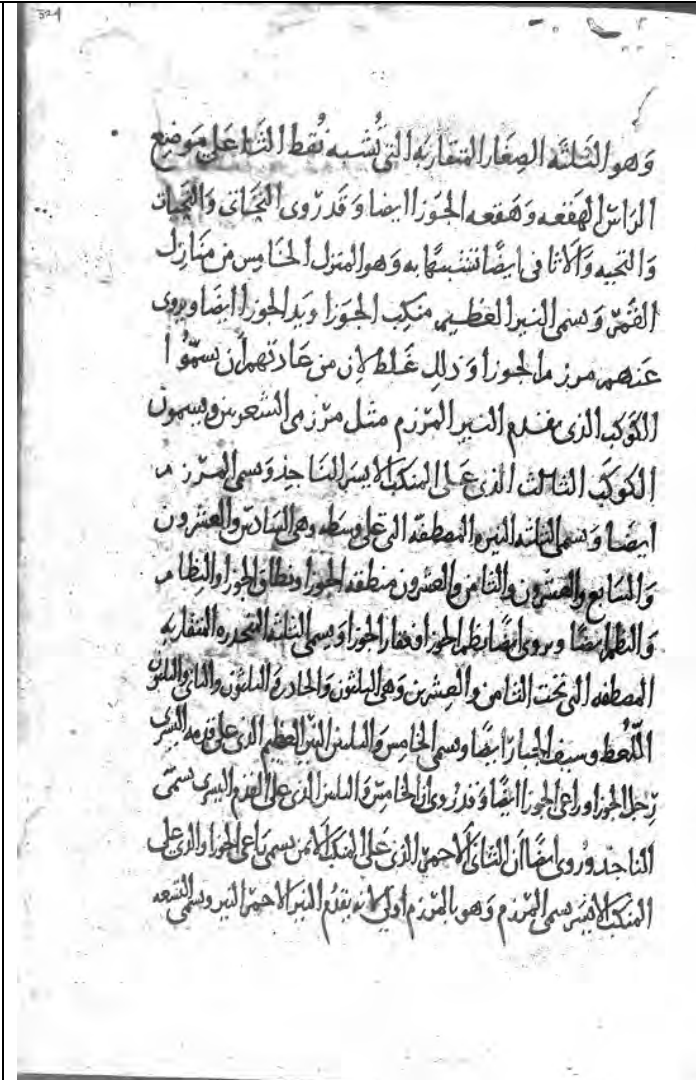 324
وهو الثلثة الصغار المتقاربة التي تشبه نقط الثا على موضع
الراس الهقعه وهقعه الجوزا ايضا وقد روى التحاتى والتحيات
والتحيه والاثافى ايضا تشبيها به وهو المنزل الخامس من منازل
القمر وسمى النير العظيم منكب الجوزا ويد الجوزا ايضا ويروى
عنهم مرزم الجوزا وذلك غلط لان من عادتهم ان يسموا
الكوكب الذى يقدم النير المرزم مثل مرزمى الشعريين ويسمون
الكوكب الثالث الذى على المنكب الايسر الناجذ وسمى المرزم
ايضا وسمى الثلثه النيره المصطفه التى على وسطه وهى السادس والعشرون
والسابع والعشرون والثامن والعشرون منطقه الجوزا ونطاق الجوزا والنظام
والنظم ايضا ويروى ايضا نظم الجوزا وفقار الجوزا وسمى الثلثه المنحدره المتقاربه
المصطفه التى تحت الثامن والعشرين وهى الثلثون والحادى والثلثون والثانى والثلثون
اللقط وسيف الجبار ايضا وسمى الخامس والثلثين النير العظيم الذى على قدمه اليسرى
رجل الجوزا وراعى الجوزا ايضا وقد روى ان الخامس والثلثين الذى على القدم اليسرى سمى
الناجذ وروى ايضا ان الثانى الاحمر الذى على المنكب الايمن يسمى راعى الجوزا والذى على
المنكب الايسر سمى المرزم وهو بالمرزم اولى لانه يقدم النير الاحمر النير وسمى التسعه